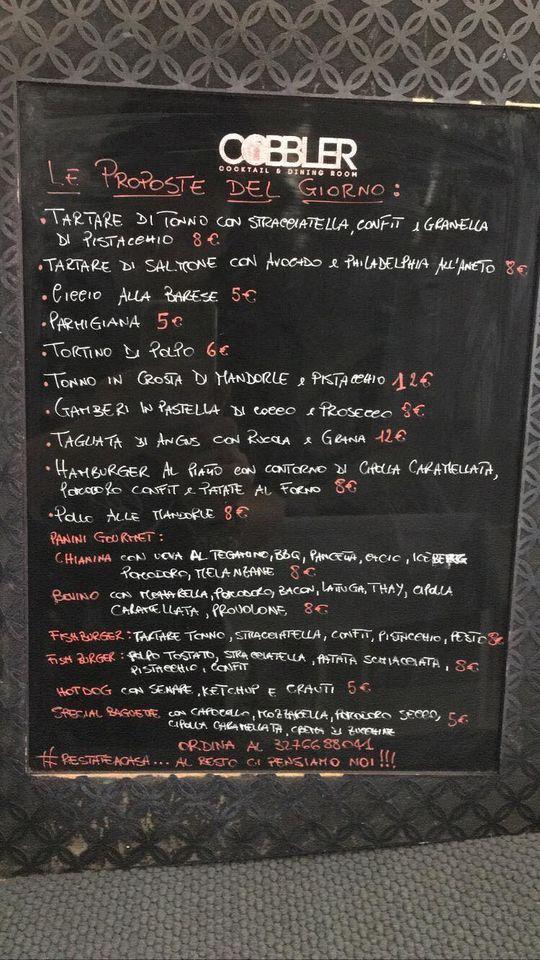 COBBLER
COCKTAIL & DINING ROOM
LE PROPOSTE DEL GIORNO:
• TARTARE DI TONNO CON STRACCIATELLA, CONFIT e GRANELLA
DI PISTACCHIO 8€
• TARTARE DI SALMONE CON AVOCADO e PHILADELPHIA ALL'ANETO 8€
• CICCIO ALLA BARESE 5€
• PARMIGIANA 5€
• TORTINO DI POLPO 6€
• TONNO IN CROSTA DI MANDORLE e PISTACCHIO 12€
• GAMBERI IN PASTELLA DI COCCO e PROSECCO 8€
• TAGLIATA DI ANGUS CON RUCOLA e GRANA 12€
• HAMBURGER AL PIATTO CON CONTORNO DI CIPOLLA CARAMELLATA,
POMODORO CONFIT e PATATE AL FORNO 8€
• POLLO ALLE MANDORLE 8€
PANINI GOURMET:
CHIANINA CON UOVA AL TEGAMINO, BBQ, PANCETTA, CACIO, ICEBERG
POMODORO, MELANZANE 8€
BOVINO CON MOZZARELLA, POMODORO, BACON, LATUGA, THAY, CIPOLLA
CARAMELLATA, PROVOLONE, 8€
FISHBURGER: TARTARE TONNO, STRACCIATELLA, CONFIT, PISTACCHIO, PESTO 8€
FISH BURGER: POLPO TOSTATO, STRACCIATELLA, PATATA SCHIACCIATA, 8€
PISTACCHIO, CONFIT
HOTDOG CON SENAPE, KETCHUP E CRAUTI 5€
SPECIAL BAGUETTE CON CAPOCOLLO, MOZZARELLA, POMODORO SECCO, 5€
CIPOLLA CARAMELLATA, CREMA DI ZUCCHINE
ORDINA AL 3276688041
#RESTATEACASA... AL RESTO CI PENSIAMO NOI!!!